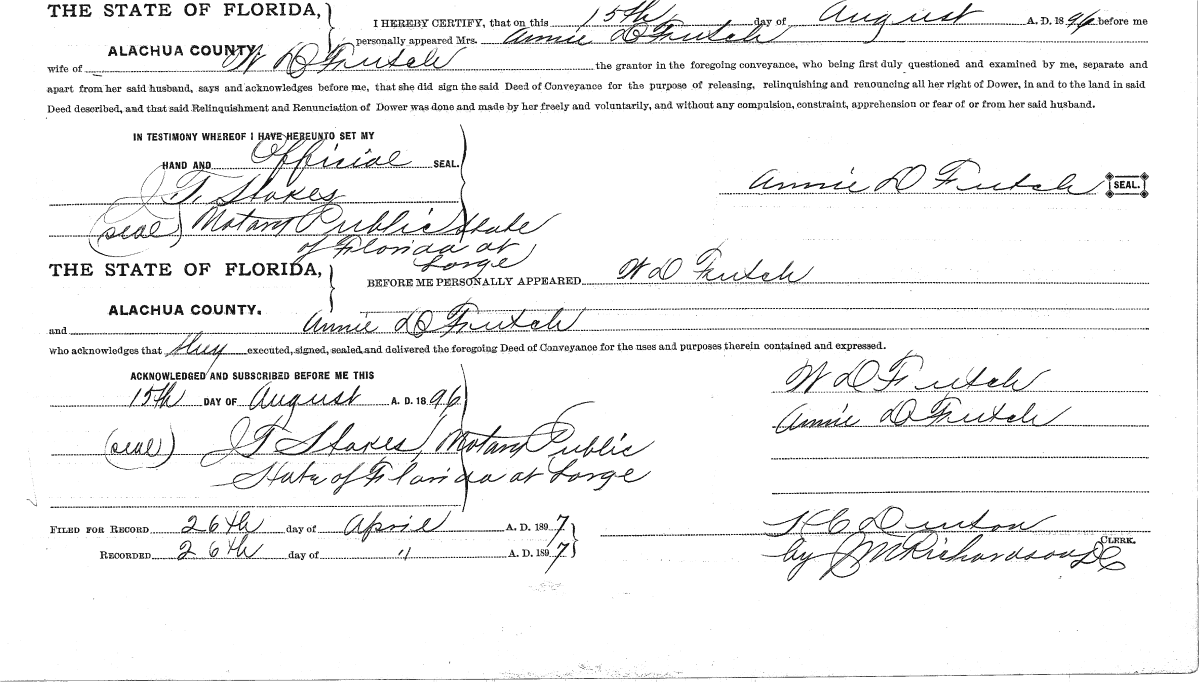 THE STATE OF FLORIDA,
I HEREBY CERTIFY, that on this 15th day of August A. D. 1896 before me
ALACHUA COUNTY.
personally appeared Mrs. Annie D Frutch
wife of W D Frutch the grantor in the foregoing conveyance, who being first duly questioned and examined by me, separate and
apart from her said husband, says and acknowledges before me, that she did sign the said Deed of Conveyance for the purpose of releasing, relinquishing and renouncing all her right of Dower, in and to the land in said
Deed described, and that said Relinquishment and Renunciation of Dower was done and made by her freely and voluntarily, and without any compulsion, constraint, apprehension or fear of or from her said husband.
IN TESTIMONY WHEREOF I HAVE HEREUNTO SET MY
HAND AND Official SEAL.
J. T. Stokes
Annie D Frutch SEAL.
(seal) Notary Public State
of Florida at
Large
THE STATE OF FLORIDA,
BEFORE ME PERSONALLY APPEARED W D Frutch
ALACHUA COUNTY.
and Annie D Frutch
who acknowledges that they executed, signed, sealed, and delivered the foregoing Deed of Conveyance for the uses and purposes therein contained and expressed.
ACKNOWLEDGED AND SUBSCRIBED BEFORE ME THIS
W D Frutch
15th DAY OF August A. D. 1896
Annie D Frutch
(seal) J T Stokes, Notary Public
State of Florida at Large
FILED FOR RECORD 26th day of April A. D. 1897
H C Denton
CLERK.
RECORDED 26th day of " A. D. 1897
by J M Richardson DC